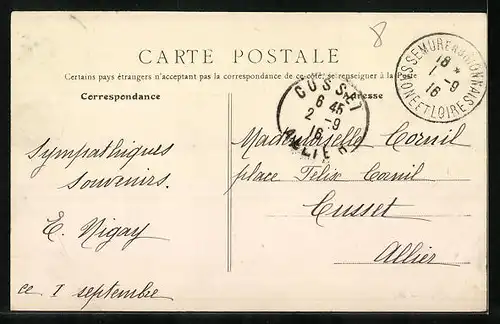 8
CARTE POSTALE
Certains pays étrangers n'acceptant pas la correspondance de ce côté, se renseigner à la Poste
Correspondance
Adresse
SEMUR EN BRIONNAIS
18 *
1 - 9
16
SAONE ET LOIRE
CUSSET
6 45
2 - 9
16
ALLIER
Sympathiques
Souvenirs.
E. Nigay
ce 1 septembre
Mademoiselle Cornil
place Felix Cornil
Cusset
Allier